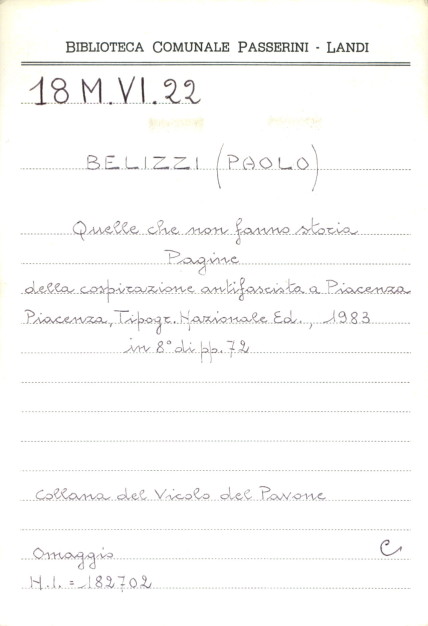 BIBLIOTECA COMUNALE PASSERINI - LANDI
18 M.VI.22
BELIZZI (PAOLO)
Quelle che non fanno storia
Pagine
della cospirazione antifascista a Piacenza
Piacenza, Tipogr. Nazionale Ed., 1983
in 8° di pp. 72
Collana del Vicolo del Pavone
Omaggio
C
N.I. = 182702